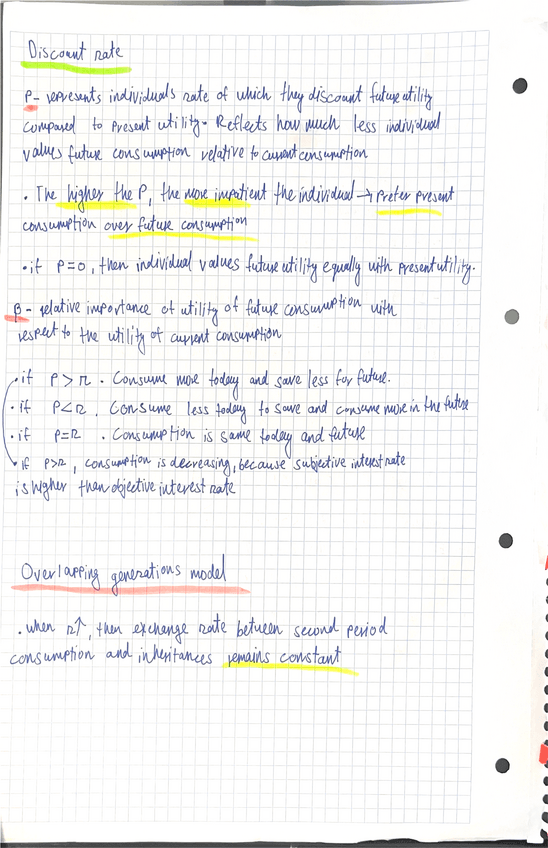 Discount rate
P- represents individuals rate of which they discount future utility
compared to present utility. Reflects how much less individual
values future consumption relative to current consumption
. The higher the P, the more impatient the individual → Prefer present
consumption over future consumption
. if P=0, then individual values future utility equally with present utility.
β - relative importance of utility of future consumption with
respect to the utility of current consumption
. if P>r . Consume more today and save less for future.
. if P<r . Consume less today to save and consume more in the future
. if P=r . Consumption is same today and future
. if P>r, consumption is decreasing, because subjective interest rate
is higher then objective interest rate
Overlapping generations model
. when r↑, then exchange rate between second period
consumption and inheritances remains constant